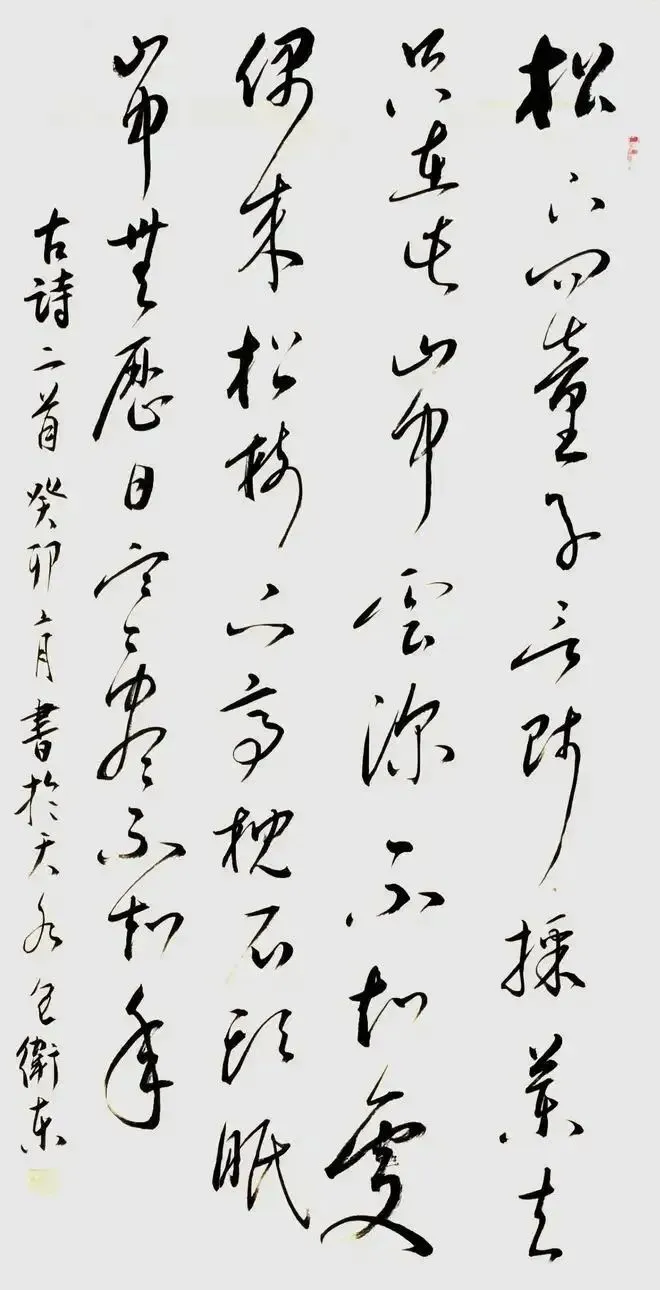 松下問童子言師採藥去
只在此山中雲深不知處
偶来松樹下高枕石頭眠
山中無歷日寒盡不知年
古詩二首癸卯月書於天水包衛东